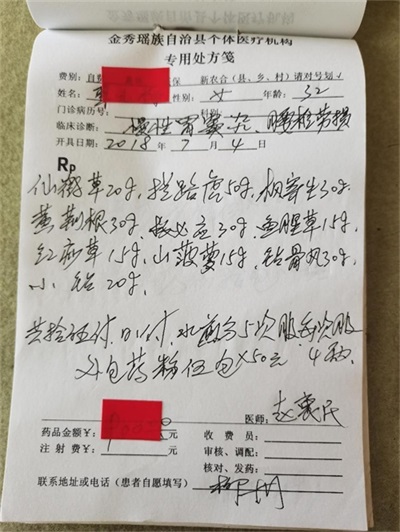 金秀瑶族自治县个体医疗机构
专用处方笺
费别：自费 保 新农合（县、乡、村）请对号划√
姓名： 性别：女 年龄：32
门诊病历号： 科别：
临床诊断：慢性胃窦炎、腰椎劳损
开具日期：2018年7月4日
Rp
仙鹤草20g、拦路虎50g、枫寄生30g、
黄荆根30g、救必应30g、鱼腥草15g、
红 草15g、山菠萝15g、钻骨风30g、
小钻20g、
共捡伍付，日1付，水煎分5次服每次服
外包药粉伍包×50元 4
医师：赵 民
药品金额￥： 元 收费员：
注射费￥： 元 审核、调配：
核对、发药：
联系地址或电话（患者自愿填写）柳州